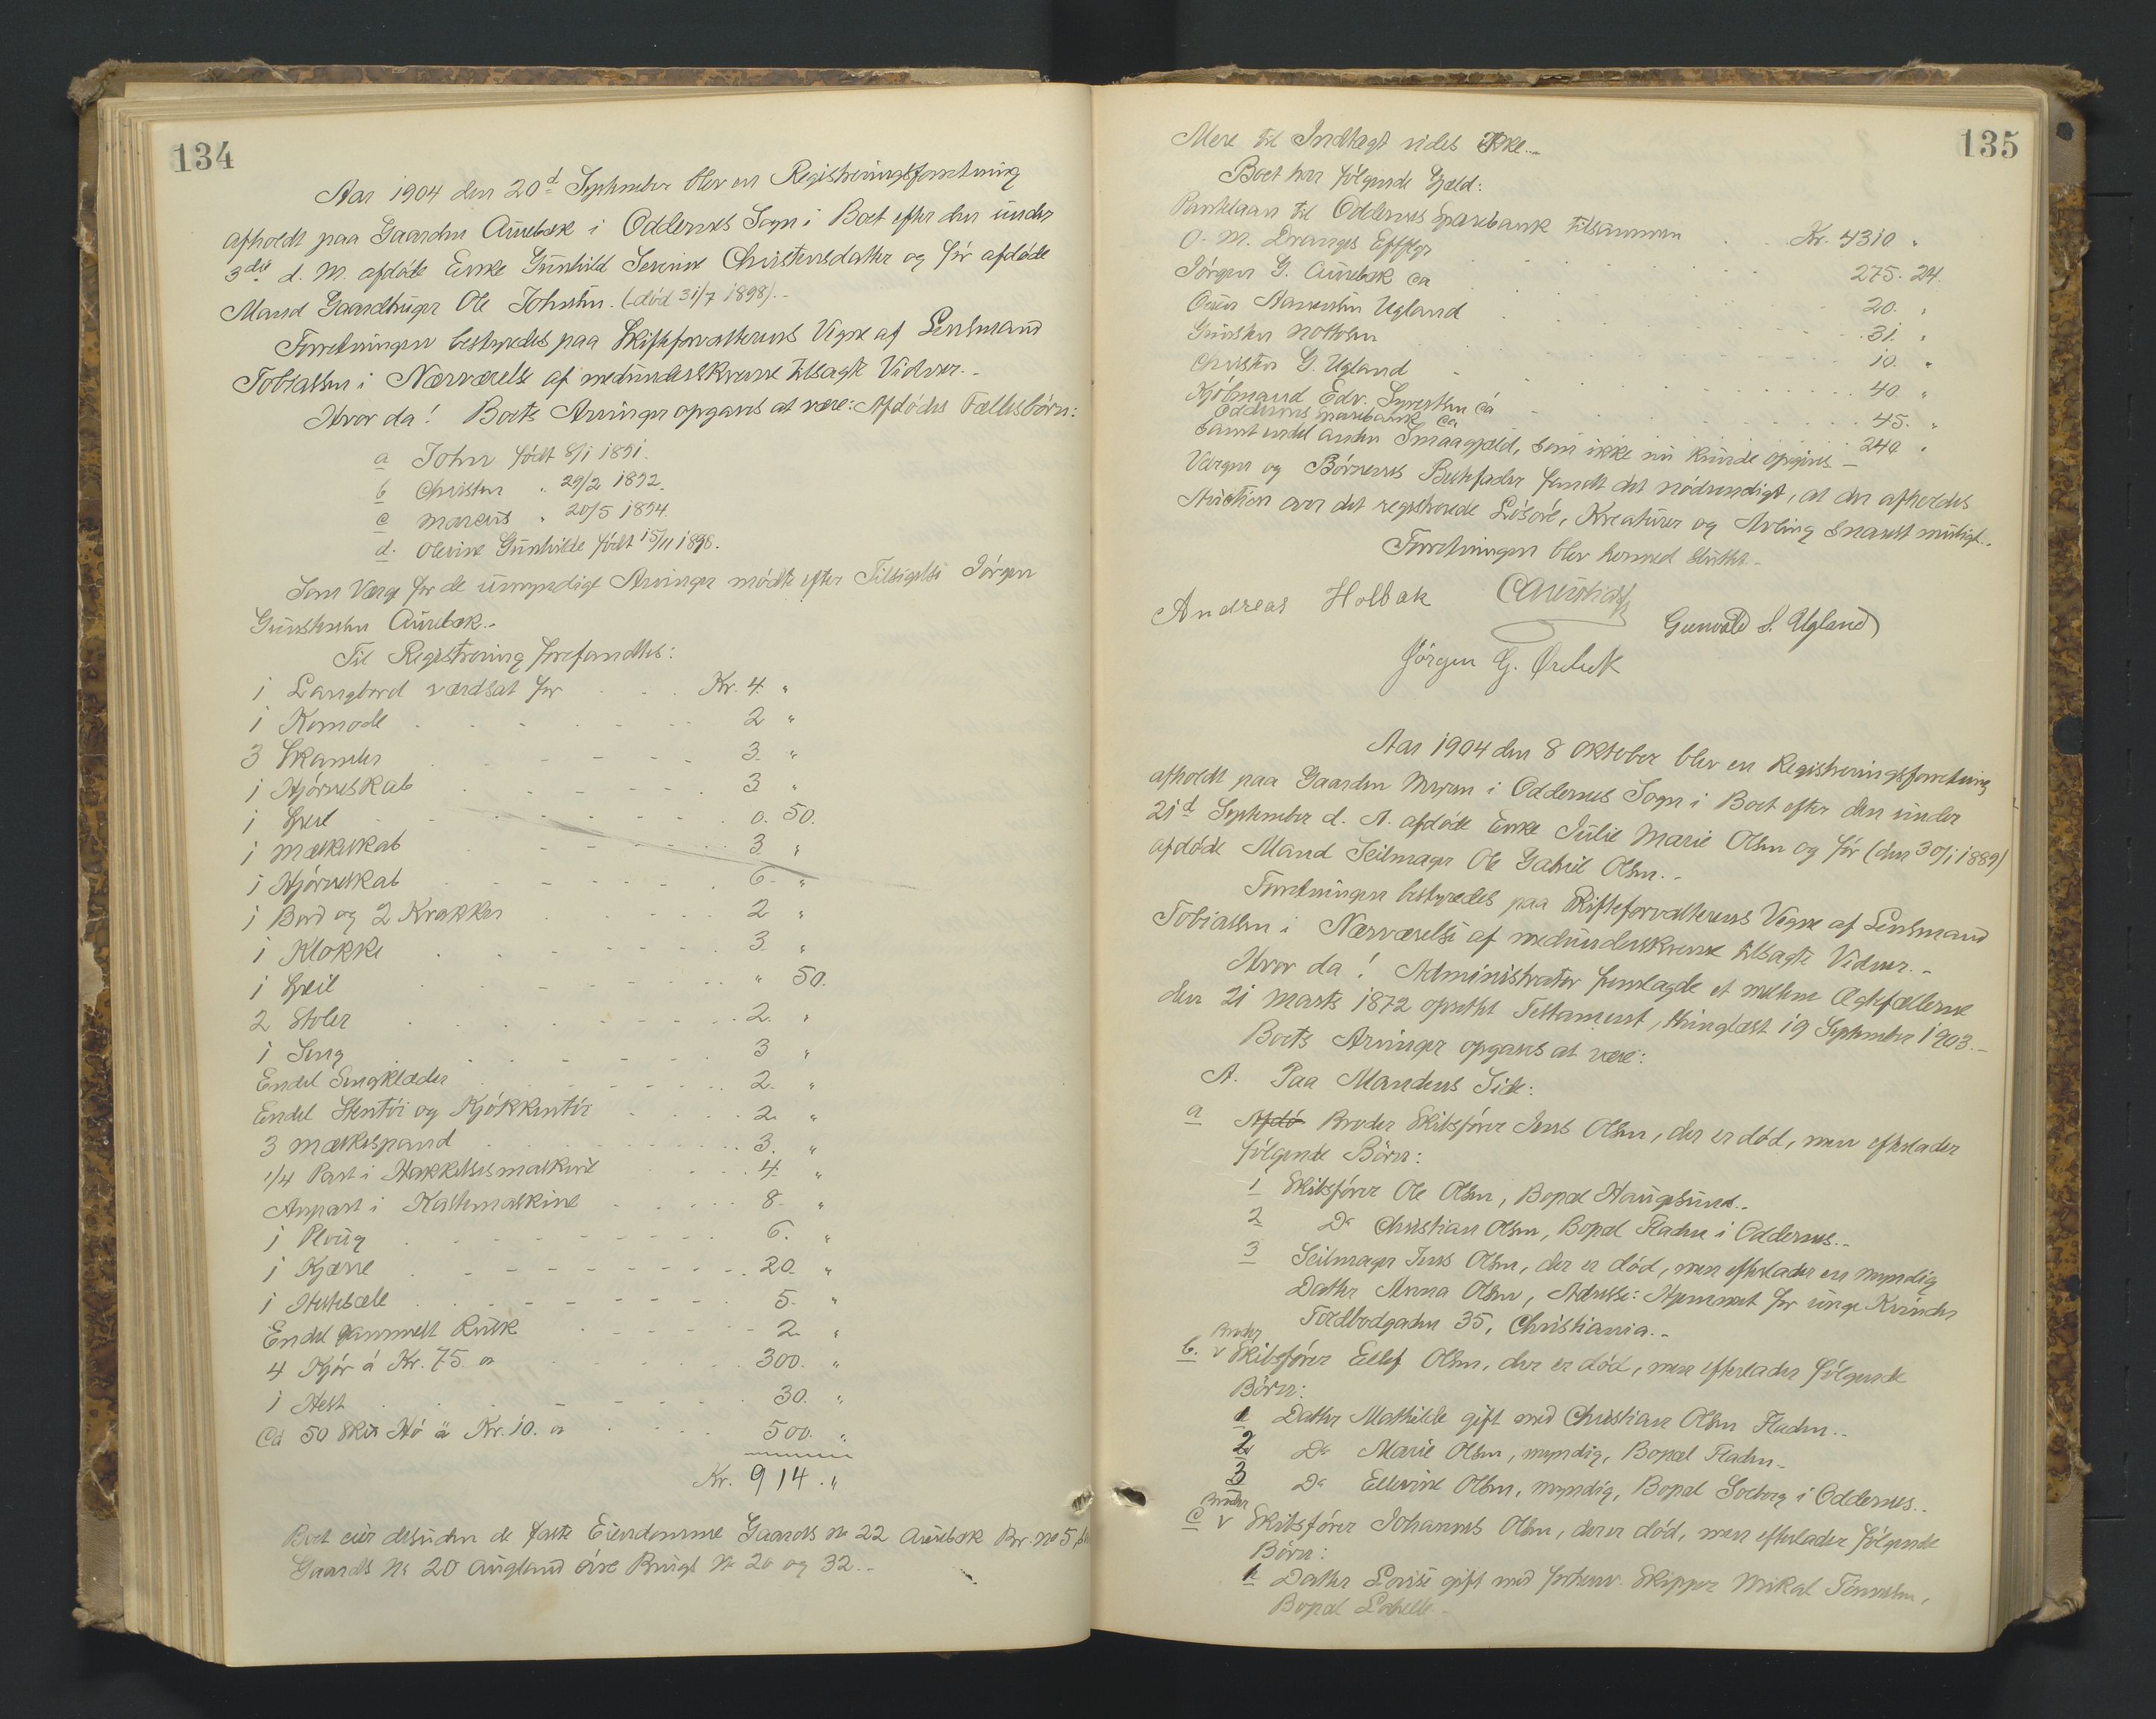 134
Aar 1904 den 20d September blev en Registreringsforretning
afholdt paa Gaarden Auebæk i Oddernes Sogn i Boet efter den under
3die d. M. afdøde Enke Gunhild Serine Christensdatter og før afdøde
Mand Gaardbruger Ole Johnsen. (død 31/7 1898).-
Forretningen bestyredes paa Skifteforvalterens Vegne af Lensmand
Tobiassen i Nærværelse af medunderskrevne tilsagte Vidner.-
Hvor da! Boets Arvinger opgaves at være: Afdødes Fællesbørn:
a John født 8/1 1891.
b Christen " 29/2 1892.
c Marcus " 20/5 1894.
d. Olevine Gunhilde født 15/11 1898.
Som Værge for de umyndige Arvinger mødte efter Tilsigelse Jørgen
Gunstensen Auebæk.-
Til Registrering forefandtes:
1 Langbord værdsat for . . . Kr. 4. "
1 Komode . . . 2 "
3 Skamler . . . 3. "
1 Hjørneskab . . . 3 "
1 Speil . . . 0. 50.
1 Mælkeskab . . . 3. "
1 Hjørneskab . . . 6. "
1 Bord og 2 Krakker . . . 2 "
1 Klokke . . . 3. "
1 Speil . . . " 50.
2 Stoler . . . 2. "
1 Seng . . . 3 "
Endel Sengklæder . . . 2. "
Endel Stentøi og Kjøkkentøi . . . 2. "
3 Mælkespand . . . 3. "
1/4 Part i Hakkelsesmaskine . . . 4. "
Anpart i Kastemaskine . . . 8. "
1 Ploug . . . 6. "
1 Kjærre . . . 20. "
1 Hestesæle . . . 5. "
Endel gammelt Rusk . . . 2. "
4 Kjør á Kr. 75. . . . 300. "
1 Hest . . . 30. "
Ca 50 Skr Hø á Kr. 10. . . . 500. "
Kr. 914. "
Boet eier desuden de faste Eiendomme Gaards No 22 Auebæk Br. No 5
Gaards No 20 Augland øvre Brugs No 20 og 32.-
135
Mere til Indtægt vides ikke.-
Boet har følgende Gjæld:
Pantelaan til Oddernes Sparebank tilsammen . . Kr. 4310 "
O. M. Dranges Efftfgr . . . 275. 24.
Jørgen G. Auebæk ca . . . 20. "
Aanensen Ugland . . . 31. "
Gunsten . . . 10. "
Christen G. Ugland . . . 40. "
Kjøbmand Edv. Syvertsen ca . . . 45. "
Oddernes Sparebank ca . . . 240 "
samt endel anden Smaagjæld, som ikke nu kunde opgives -
Værgen og Børnenes Bedstefader fandt det nødvendigt, at der afholdes
Auction over det registrerede Løsøre, Kreaturer og Avling snarest muligt.-
Forretningen blev hermed sluttet.-
Andreas Holbæk
Gunvald S. Ugland
Jørgen G. Ørebek
Aar 1904 den 8 Oktober blev en Registreringsforretning
afholdt paa Gaarden Myren i Oddernes Sogn i Boet efter den under
21d September d. A. afdøde Enke Julie Marie Olsen og før (den 30/1 1889)
afdøde Mand Seilmager Ole Gabriel Olsen.-
Forretningen bestyredes paa Skifteforvalterens Vegne af Lensmand
Tobiassen i Nærværelse af medunderskrevne tilsagte Vidner.-
Hvor da! Administrator fremlagde et mellem Ægtefællerne
den 21 Marts 1872 oprettet Testament, thinglæst 19 September 1903.-
Boets Arvinger opgaves at være:
A. Paa Mandens Side:
a Afdø Broder Skibsfører Jens Olsen, der er død, men efterlader
følgende Børn:
1 Skibsfører Ole Olsen, Bopæl Haugesund.-
2 Do Christian Olsen, Bopæl Fladen i Oddernes.-
3 Seilmager Jens Olsen, der er død, men efterlader en myndig
Datter Anna Olsen, Adresse: Hjemmet for unge Kvinder
Toldbodgaden 35, Christiania.-
Broder
b. v Skibsfører Ellef Olsen, der er død, men efterlader følgende
Børn:
1 Datter Mathilde gift med Christian Olsen Fladen.-
2 Do Marie Olsen, myndig, Bopæl Fladen.-
3 Do Ellevine Olsen, myndig, Bopæl Solborg i Oddernes.-
Broder
c v Skibsfører Johannes Olsen, der er død, men efterlader følgende
Børn:
1 Datter Lovise gift med forhenv. Skipper Mikal Tønnesen,
Bopæl